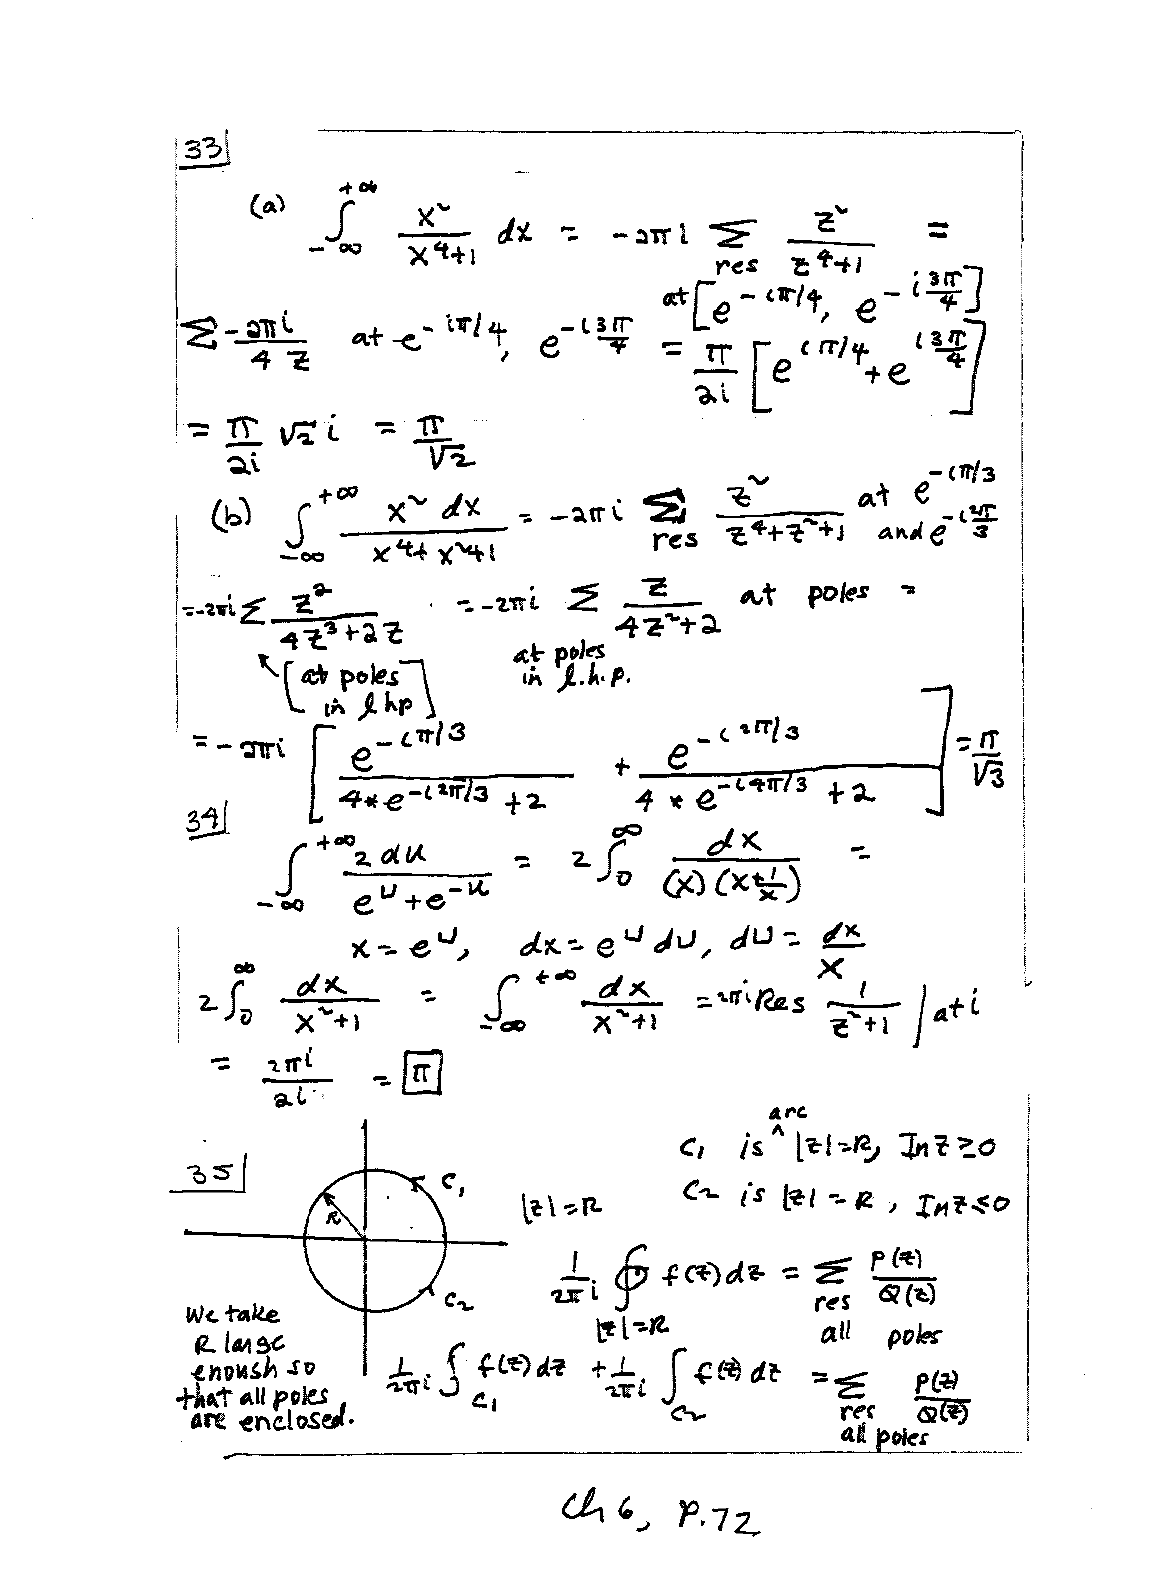 33
(a) ∫_{-∞}^{+∞} x²/(x⁴+1) dx = -2πi Σ_{res} z²/(z⁴+1) =
at [e^{-iπ/4}, e^{-i3π/4}]
Σ -2πi/(4z) at e^{-iπ/4}, e^{-i3π/4} = π/(2i) [e^{iπ/4} + e^{i3π/4}]
= π/(2i) √2 i = π/√2
(b) ∫_{-∞}^{+∞} x² dx/(x⁴+x²+1) = -2πi Σ_{res} z²/(z⁴+z²+1) at e^{-iπ/3} and e^{-i2π/3}
= -2πi Σ z²/(4z³+2z) = -2πi Σ z/(4z²+2) at poles =
[at poles in lhp] at poles in l.h.p.
= -2πi [e^{-iπ/3}/(4*e^{-i2π/3}+2) + e^{-i2π/3}/(4*e^{-i4π/3}+2)] = π/√3
34
∫_{-∞}^{+∞} 2du/(e^u+e^{-u}) = 2∫_0^∞ dx/((x)(x+1/x)) =
x = e^u, dx = e^u du, du = dx/x
2∫_0^∞ dx/(x²+1) = ∫_{-∞}^{+∞} dx/(x²+1) = 2πi Res 1/(z²+1) | at i
= 2πi/2i = π
35
C₁ is arc |z|=R, Im z ≥ 0
C₂ is |z| = R, Im z ≤ 0
C₁
R
|z|=R
C₂
1/(2πi) ∮_{|z|=R} f(z)dz = Σ_{res all poles} P(z)/Q(z)
We take
R large
enough so
that all poles
are enclosed.
1/(2πi) ∫_{C₁} f(z)dz + 1/(2πi) ∫_{C₂} f(z)dz = Σ_{res all poles} P(z)/Q(z)
Ch 6, P.72